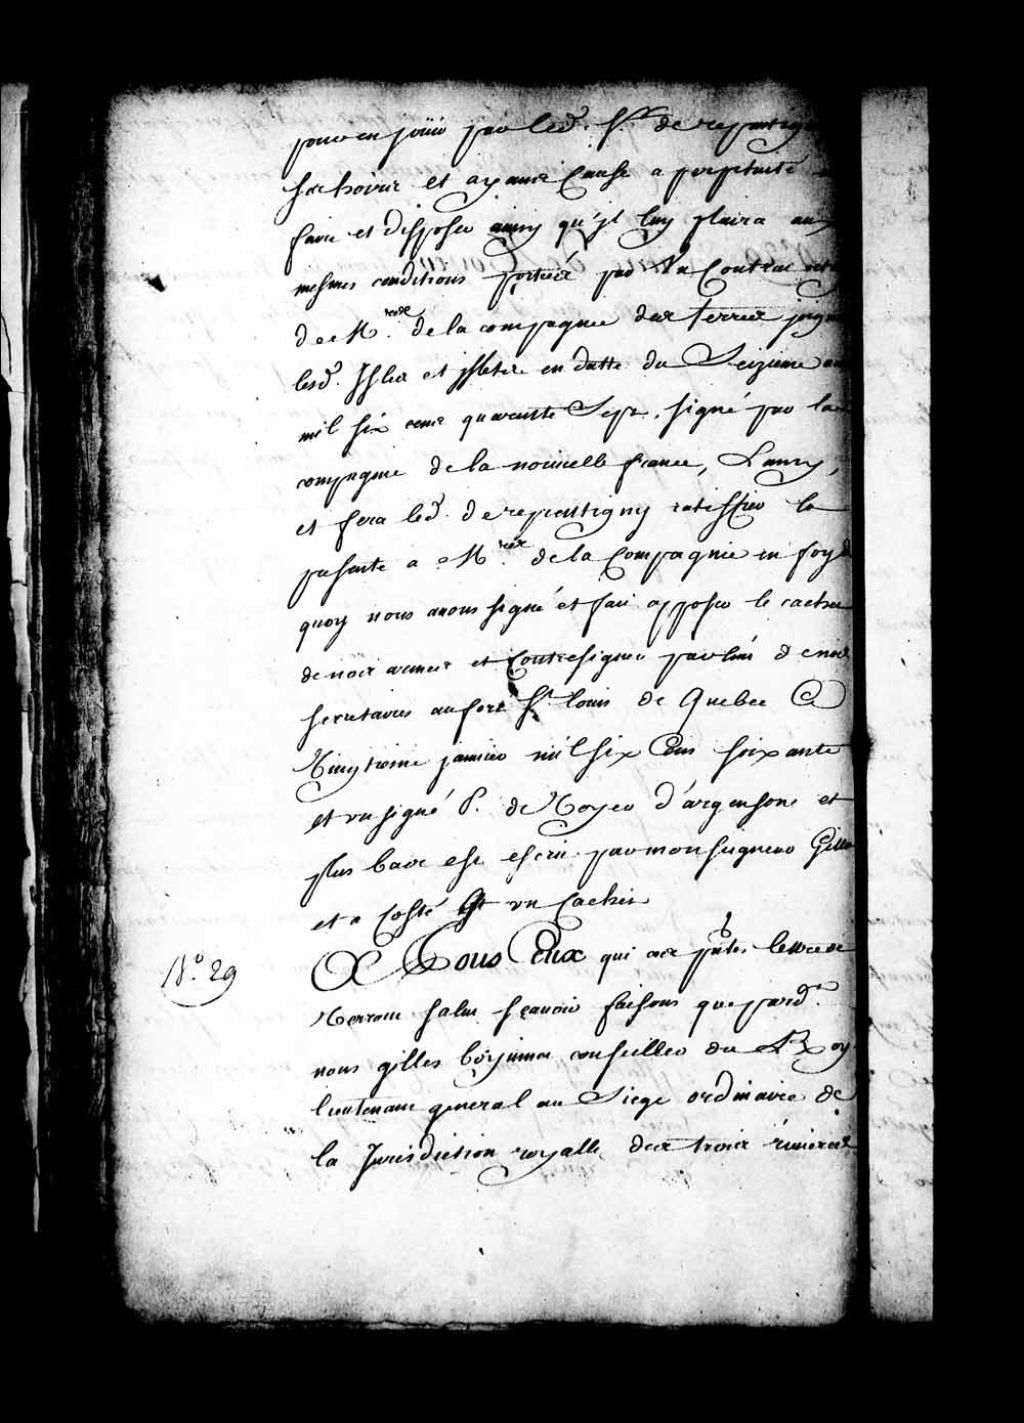 pour en jouir par led. Sr. de repentigny
ses hoirs et ayans Cause a perpetuité
faire et disposer ainsy qu'jl luy plaira aux
mesmes conditions portées par Un Contrac
de Mrs. de la compagnie des terres joigna
lesd. Isles et jslets en datte du Seizieme
mil six cens quarente Sept. signé par la
compagnie de la nouvelle france, Lamy,
et fera led. de repentigny ratiffier la
pnsente a Mrs. de la Compagnie en foy de
quoy nous avons signé et fait apposer le cachet
de nos armes et Contresigner par l'un de nos
secretaires au fort St. louis de Quebec Ce
Vingtieme janvier mil six Cens soixante
et vn signé P. de Voyer d'argenson et
plus bas est escrit par monseigneur
et a Costé Est vn Cachet
No. 29
A Tous Ceux qui ces pntes lettres
Verront salut sçavoir faisons que pard.
nous gilles boyvinet conseiller du Roy
lieutenant general au Siege ordinaire de
la Jurisdiction royalle des trois rivieres